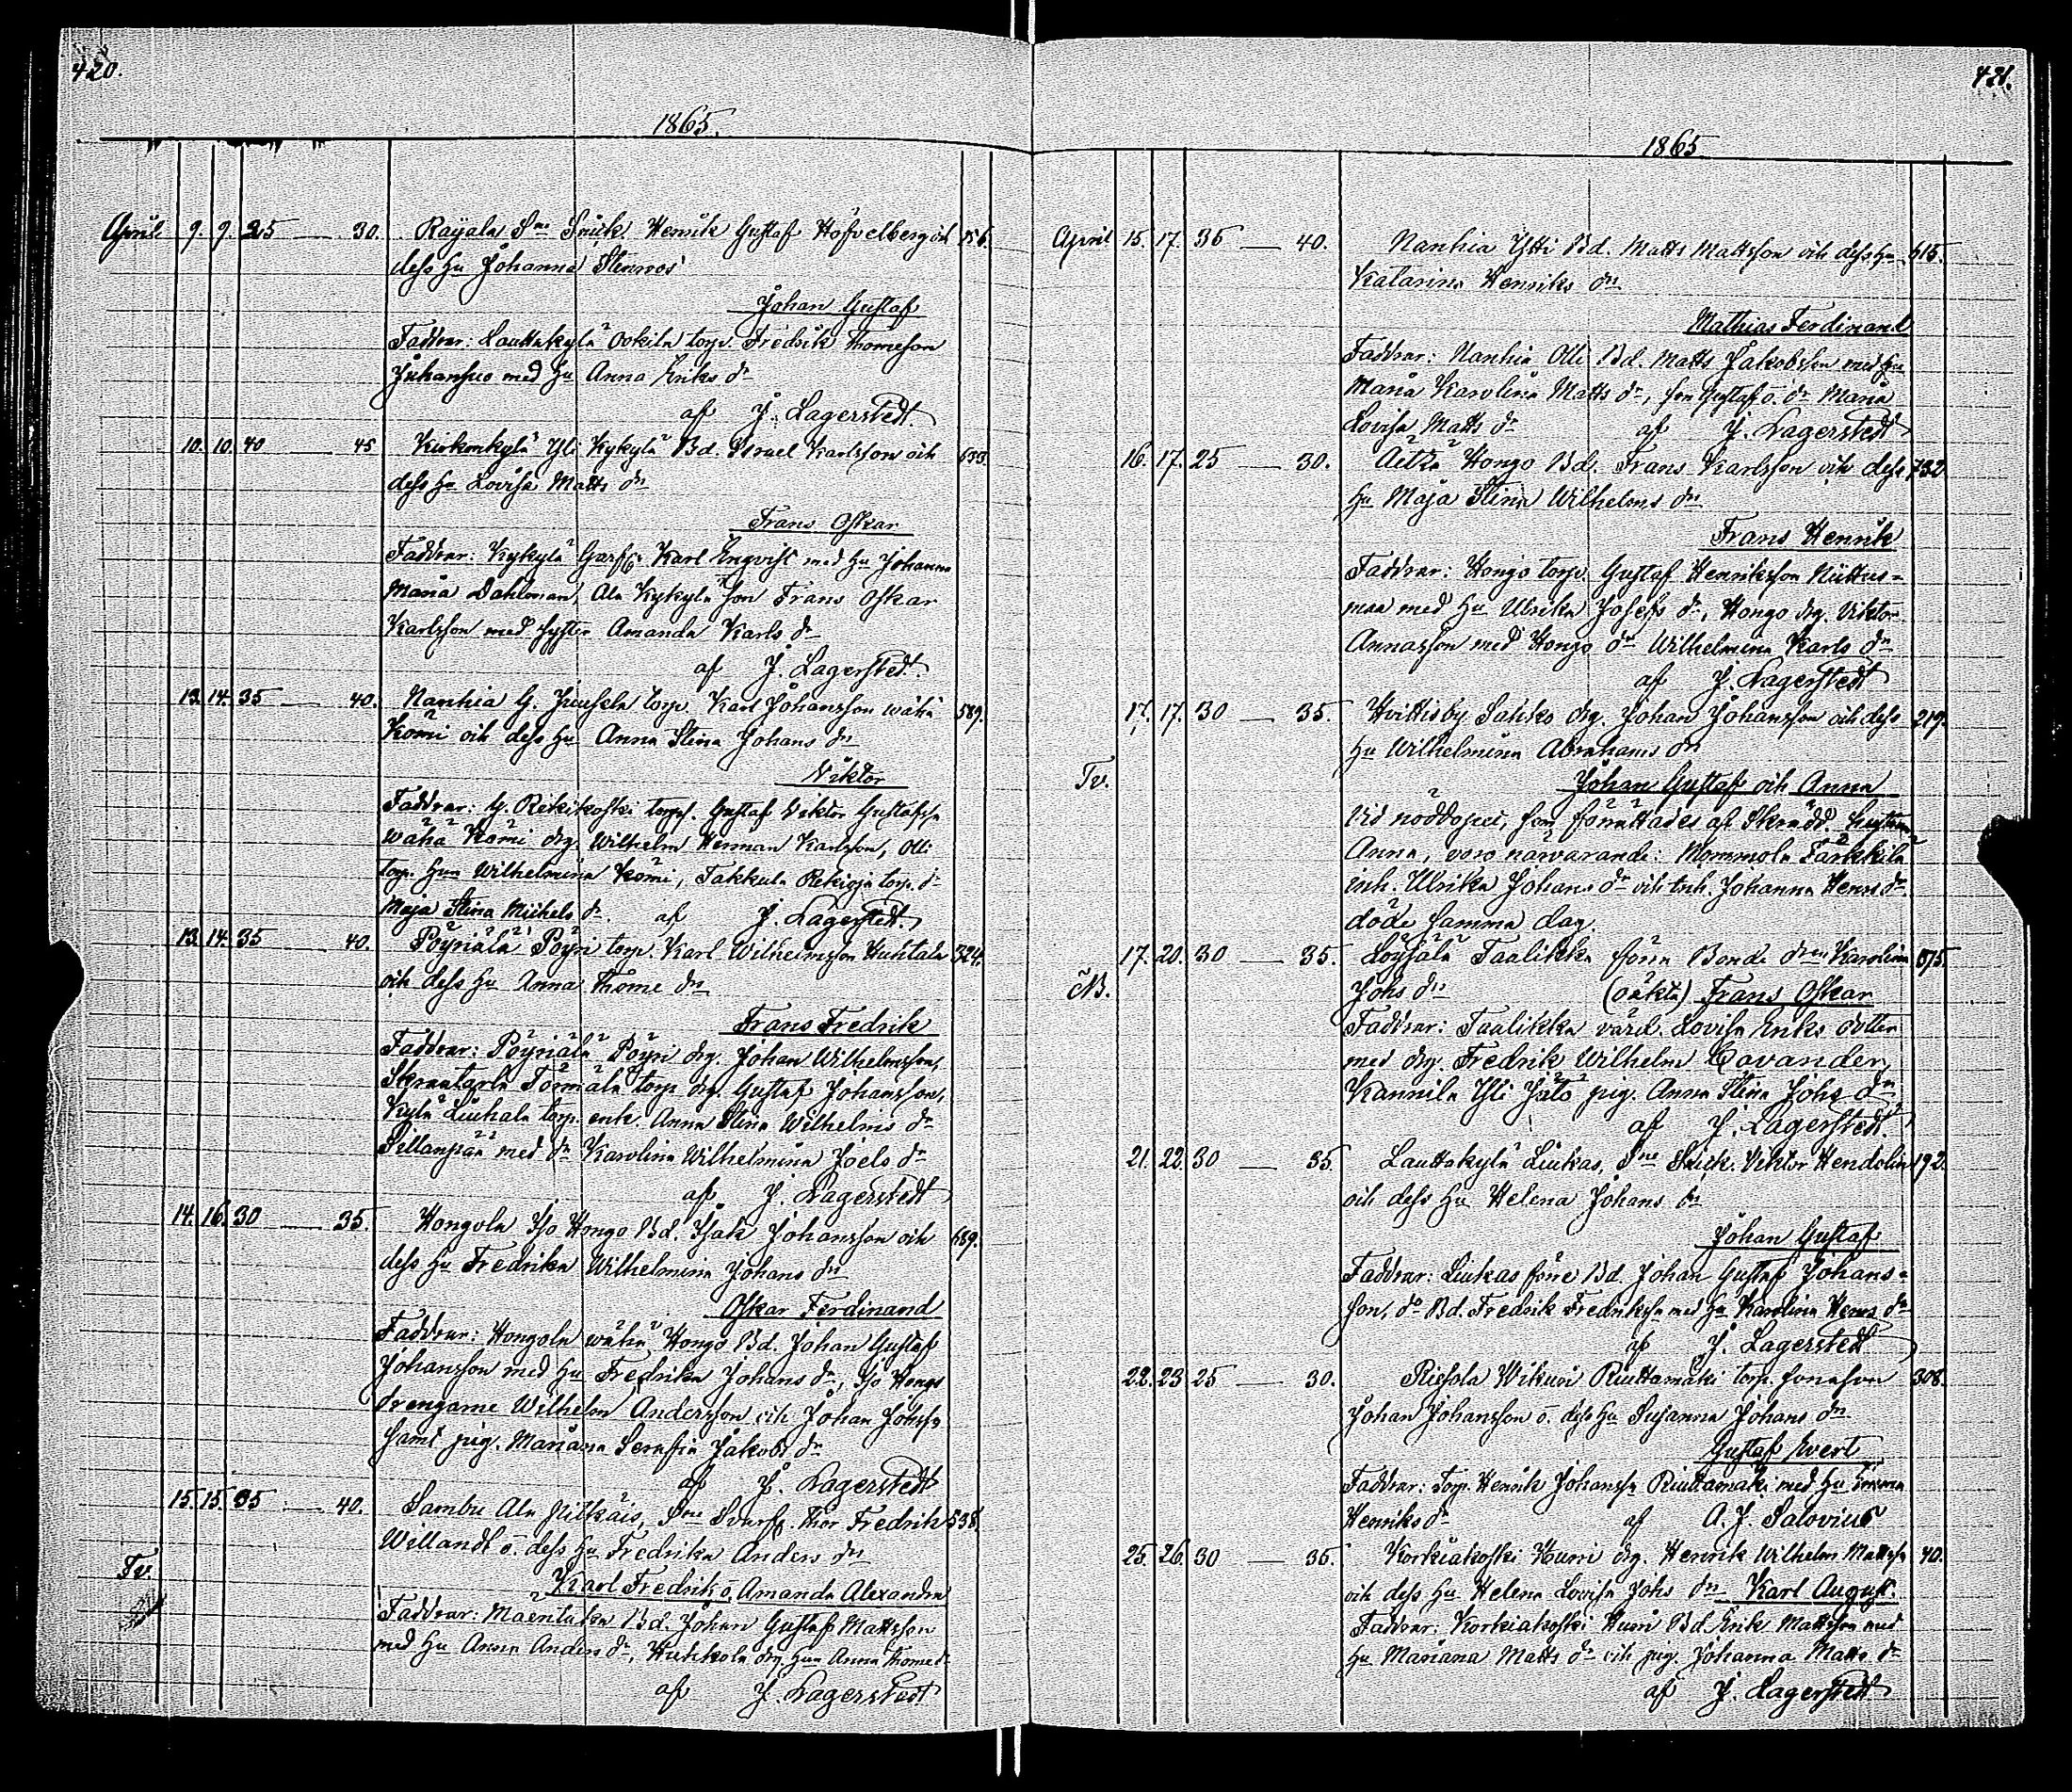 420.
1865.
April 9. 9. 25 — 30. Raijala Sne Snick. Henrik Gustaf Höfvelberg och 156.
dess Hu Johanna Stenroos
Johan Gustaf
Faddrar: Lauttakylä torp. Fredrik Thomeson
Juhansuo med Hu Anna Eriks dr
af J. Lagerstedt.
10. 10. 40 45 Kirkonkylä Yli Kykylä Bd. Israel Karlsson och 633.
dess Hu Lovisa Matts dr
Frans Oskar
Faddrar: Kykylä Karl Engvist med Hu Johanna
Maria Dahlman, Ala Kykylä son Frans Oskar
Karlsson med syster Amanda Karls dr
af J. Lagerstedt.
13. 14. 35 — 40. Nanhia G. Junsela torp. Karl Johansson wähä 589.
Komi och dess Hu Anna Stina Johans dr
Viktor
Faddrar: G. Rekikoski torpf. Gustaf Viktor Gustafss
wähä Komi drg. Wilhelm Herman Karlsson, Olli
torp. Hun Wilhelmina Komi, Takkula Rekioja torp. dr
Maja Stina Michels dr. af J. Lagerstedt.
13. 14. 35 — 40. Pöyriälä Pöyri torp. Karl Wilhelmsson Huhtala 324.
och dess Hu Anna Thome dr
Frans Fredrik
Faddrar: Pöyriälä Pöyri drg. Johan Wilhelmsson,
Skraatarla Törmälä torp. drg. Gustaf Johansson,
Kylä Liuhala torp. enk. Anna Stina Wilhelms dr
Sillanpää med dr Karolina Wilhelmina Joels dr
af J. Lagerstedt
14. 16. 30 — 35. Hongola Iso Hongo Bd. Isak Johansson och 689.
dess Hu Fredrika Wilhelmina Johans dr
Oskar Ferdinand
Faddrar: Hongola wähä Hongo Bd. Johan Gustaf
Johansson med Hu Fredrika Johans dr, Iso Hongo
drengarne Wilhelm Andersson och Johan Johss
samt pig. Mariana Serafia Jakobs dr
af J. Lagerstedt
15. 15. 35 — 40. Sambu Ala Pitkäis, Sne Svarf. Thor Fredrik 538.
Willandt o. dess Hu Fredrika Anders dr
Tv. Karl Fredrik o. Amanda Alexandra
Faddrar: Mäentaka Bd. Johan Gustaf Mattsson
med Hu Anna Anders dr, Huhkola drg. Hun Anna Thome dr
af J. Lagerstedt
421.
1865
April 15. 17. 36 — 40. Nanhia Ytti Bd. Matts Mattsson och dess Hu 615.
Katarina Henriks dr
Mathias Ferdinand
Faddrar: Nanhia Olli Bd. Matts Jakobsson med Hu
Maria Karolina Matts dr, son Gustaf o. dr Maria
Lovisa Matts dr af J. Lagerstedt
16. 17. 25 — 30. Äetsä Hongo Bd. Frans Karlsson och dess 732
Hu Maja Stina Wilhelms dr
Frans Henrik
Faddrar: Hongo torp. Gustaf Henriksson Niittus-
maa med Hu Ulrika Josefs dr, Hongo drg. Viktor
Annasson med Hongo dr Wilhelmina Karls dr
af J. Lagerstedt
17. 17. 30 — 35. Hvittisby Sahko drg. Johan Johansson och dess 219.
Hu Wilhelmina Abrahams dr
Tv. Johan Gustaf och Anna
Vid nöddopet, som förrättades af Skrädd. hustrun
Anna, voro närvarande: Mommola Tärkkilä
inh. Ulrika Johans dr och inh. Johanna Henr. dr
döde samma dag.
17. 20. 30 — 35. Löysälä Taalikka förra Bonde dren Karolina 875.
NB. Johs dr (oäkta) Frans Oskar
Faddrar: Taalikka värd. Lovisa Eriks dotter
med drg. Fredrik Wilhelm Cavander,
Kannila Yli Jätö pig. Anna Stina Johs dr
af J. Lagerstedt.
21. 22. 30 — 35. Lauttakylä Liukas, Sne Snick. Viktor Hendolin 192.
och dess Hu Helena Johans dr
Johan Gustaf
Faddrar: Liukas förre Bd. Johan Gustaf Johans-
son, do Bd. Fredrik Fredrikss med Hu Karolina Henr. dr
af J. Lagerstedt
22. 23 25 — 30. Riesola Wikuri Riuttamäki torp. sonason 308.
Johan Johansson o. dess Hu Susanna Johans dr
Gustaf Evert
Faddrar: Torp. Henrik Johanss Riuttamäki med Hu Emma
Henriks dr af A. J. Salovius
25. 26. 30 — 35. Korkiakoski Hurri drg. Henrik Wilhelm Mattss 40.
och dess Hu Helena Lovisa Johs dr Karl August.
Faddrar: Korkiakoski Hurri Bd. Erik Mattsson med
Hu Mariana Matts dr och pig. Johanna Matts dr
af J. Lagerstedt